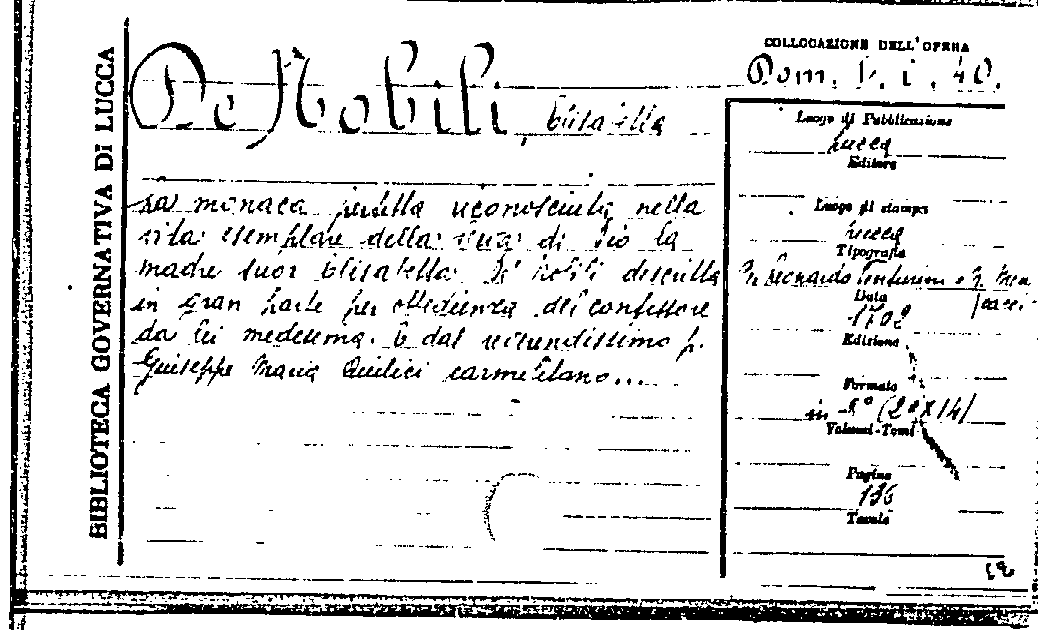 BIBLIOTECA GOVERNATIVA DI LUCCA
De Nobili, Elisabetta
La monaca perfetta riconosciuta nella
vita esemplare della serva di Dio la
madre suor Elisabetta De' Nobili descritta
in gran parte per obbedienza del confessore
da lei medesima. E dal reverendissimo p.
Giuseppe Maria Quilici carmelitano...
COLLOCAZIONE DELL'OPERA
Dom. V. i. 40.
Luogo di Pubblicazione
Lucca
Editore
Luogo di stampa
Lucca
Tipografia
Per Leonardo Venturini
Data
1702
Edizione
Formato
in - 8° (20x14)
Volumi-Tomi
Pagine
136
Tavole